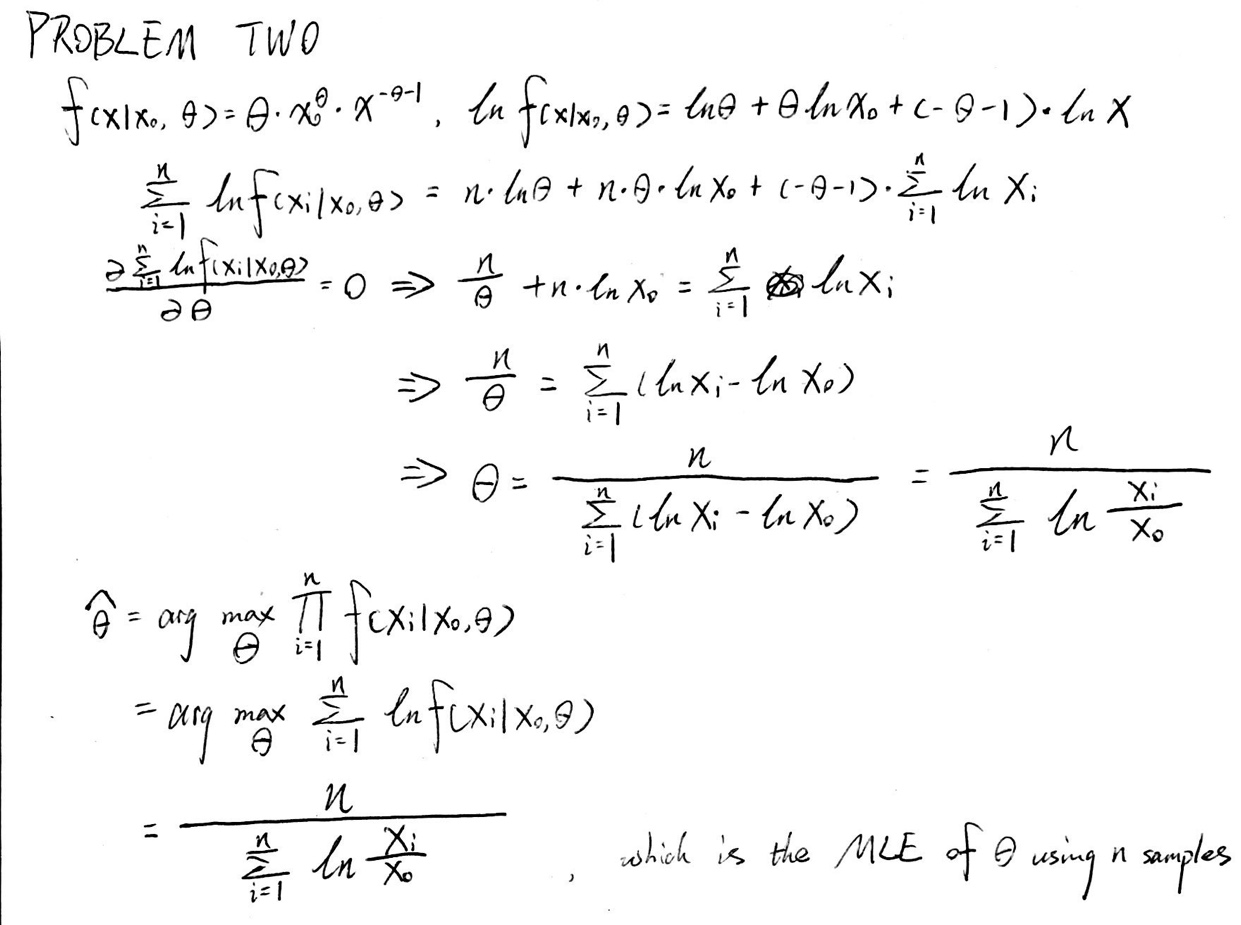 PROBLEM TWO
f(x|x₀, θ) = θ · x₀^θ · x^(-θ-1), ln f(x|x₀, θ) = ln θ + θ ln x₀ + (-θ-1) · ln x
∑_{i=1}^{n} ln f(xᵢ|x₀, θ) = n · ln θ + n · θ · ln x₀ + (-θ-1) · ∑_{i=1}^{n} ln xᵢ
∂ ∑_{i=1}^{n} ln f(xᵢ|x₀, θ) / ∂θ = 0 ⇒ n/θ + n · ln x₀ = ∑_{i=1}^{n} ln xᵢ
⇒ n/θ = ∑_{i=1}^{n} (ln xᵢ - ln x₀)
⇒ θ = n / ∑_{i=1}^{n} (ln xᵢ - ln x₀) = n / ∑_{i=1}^{n} ln (xᵢ/x₀)
θ̂ = arg max_θ ∏_{i=1}^{n} f(xᵢ|x₀, θ)
= arg max_θ ∑_{i=1}^{n} ln f(xᵢ|x₀, θ)
= n / ∑_{i=1}^{n} ln (xᵢ/x₀) , which is the MLE of θ using n samples